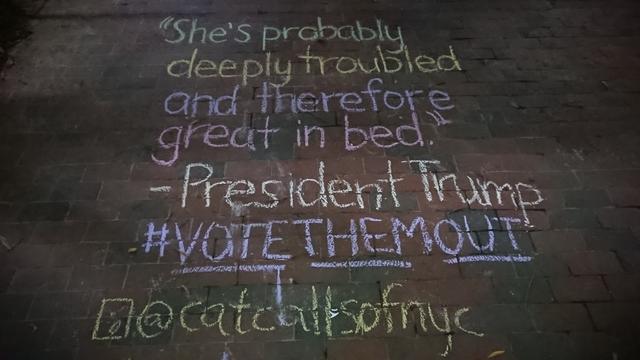 "She's probably
deeply troubled
and therefore
great in bed."
-President Trump
#VOTETHEMOUT
@catcallsofnyc